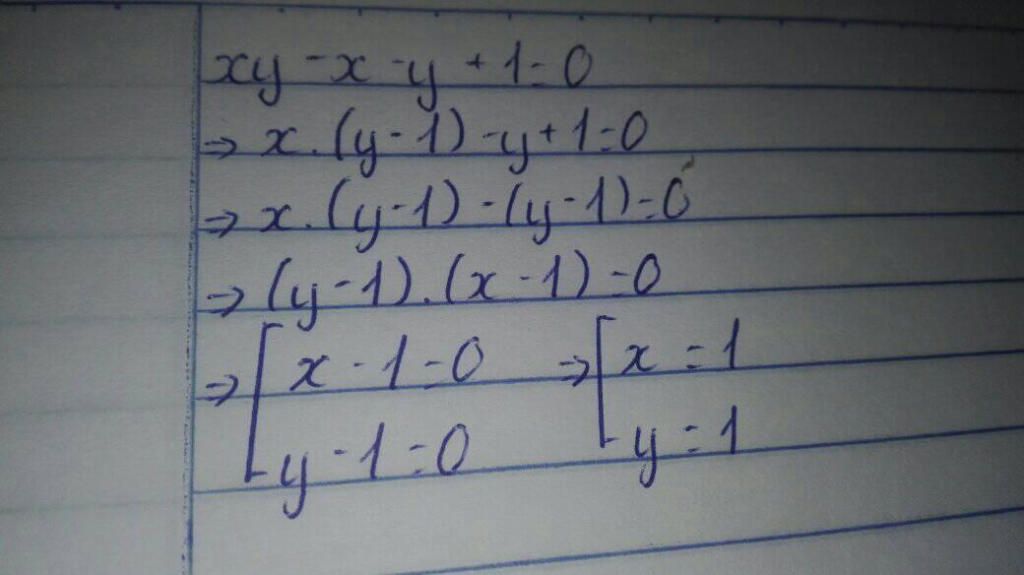 xy - x - y + 1 = 0
⇒ x.(y - 1) - y + 1 = 0
⇒ x.(y - 1) - (y - 1) = 0
⇒ (y - 1).(x - 1) = 0
⇒ [ x - 1 = 0 ⇒ [ x = 1
y - 1 = 0 y = 1